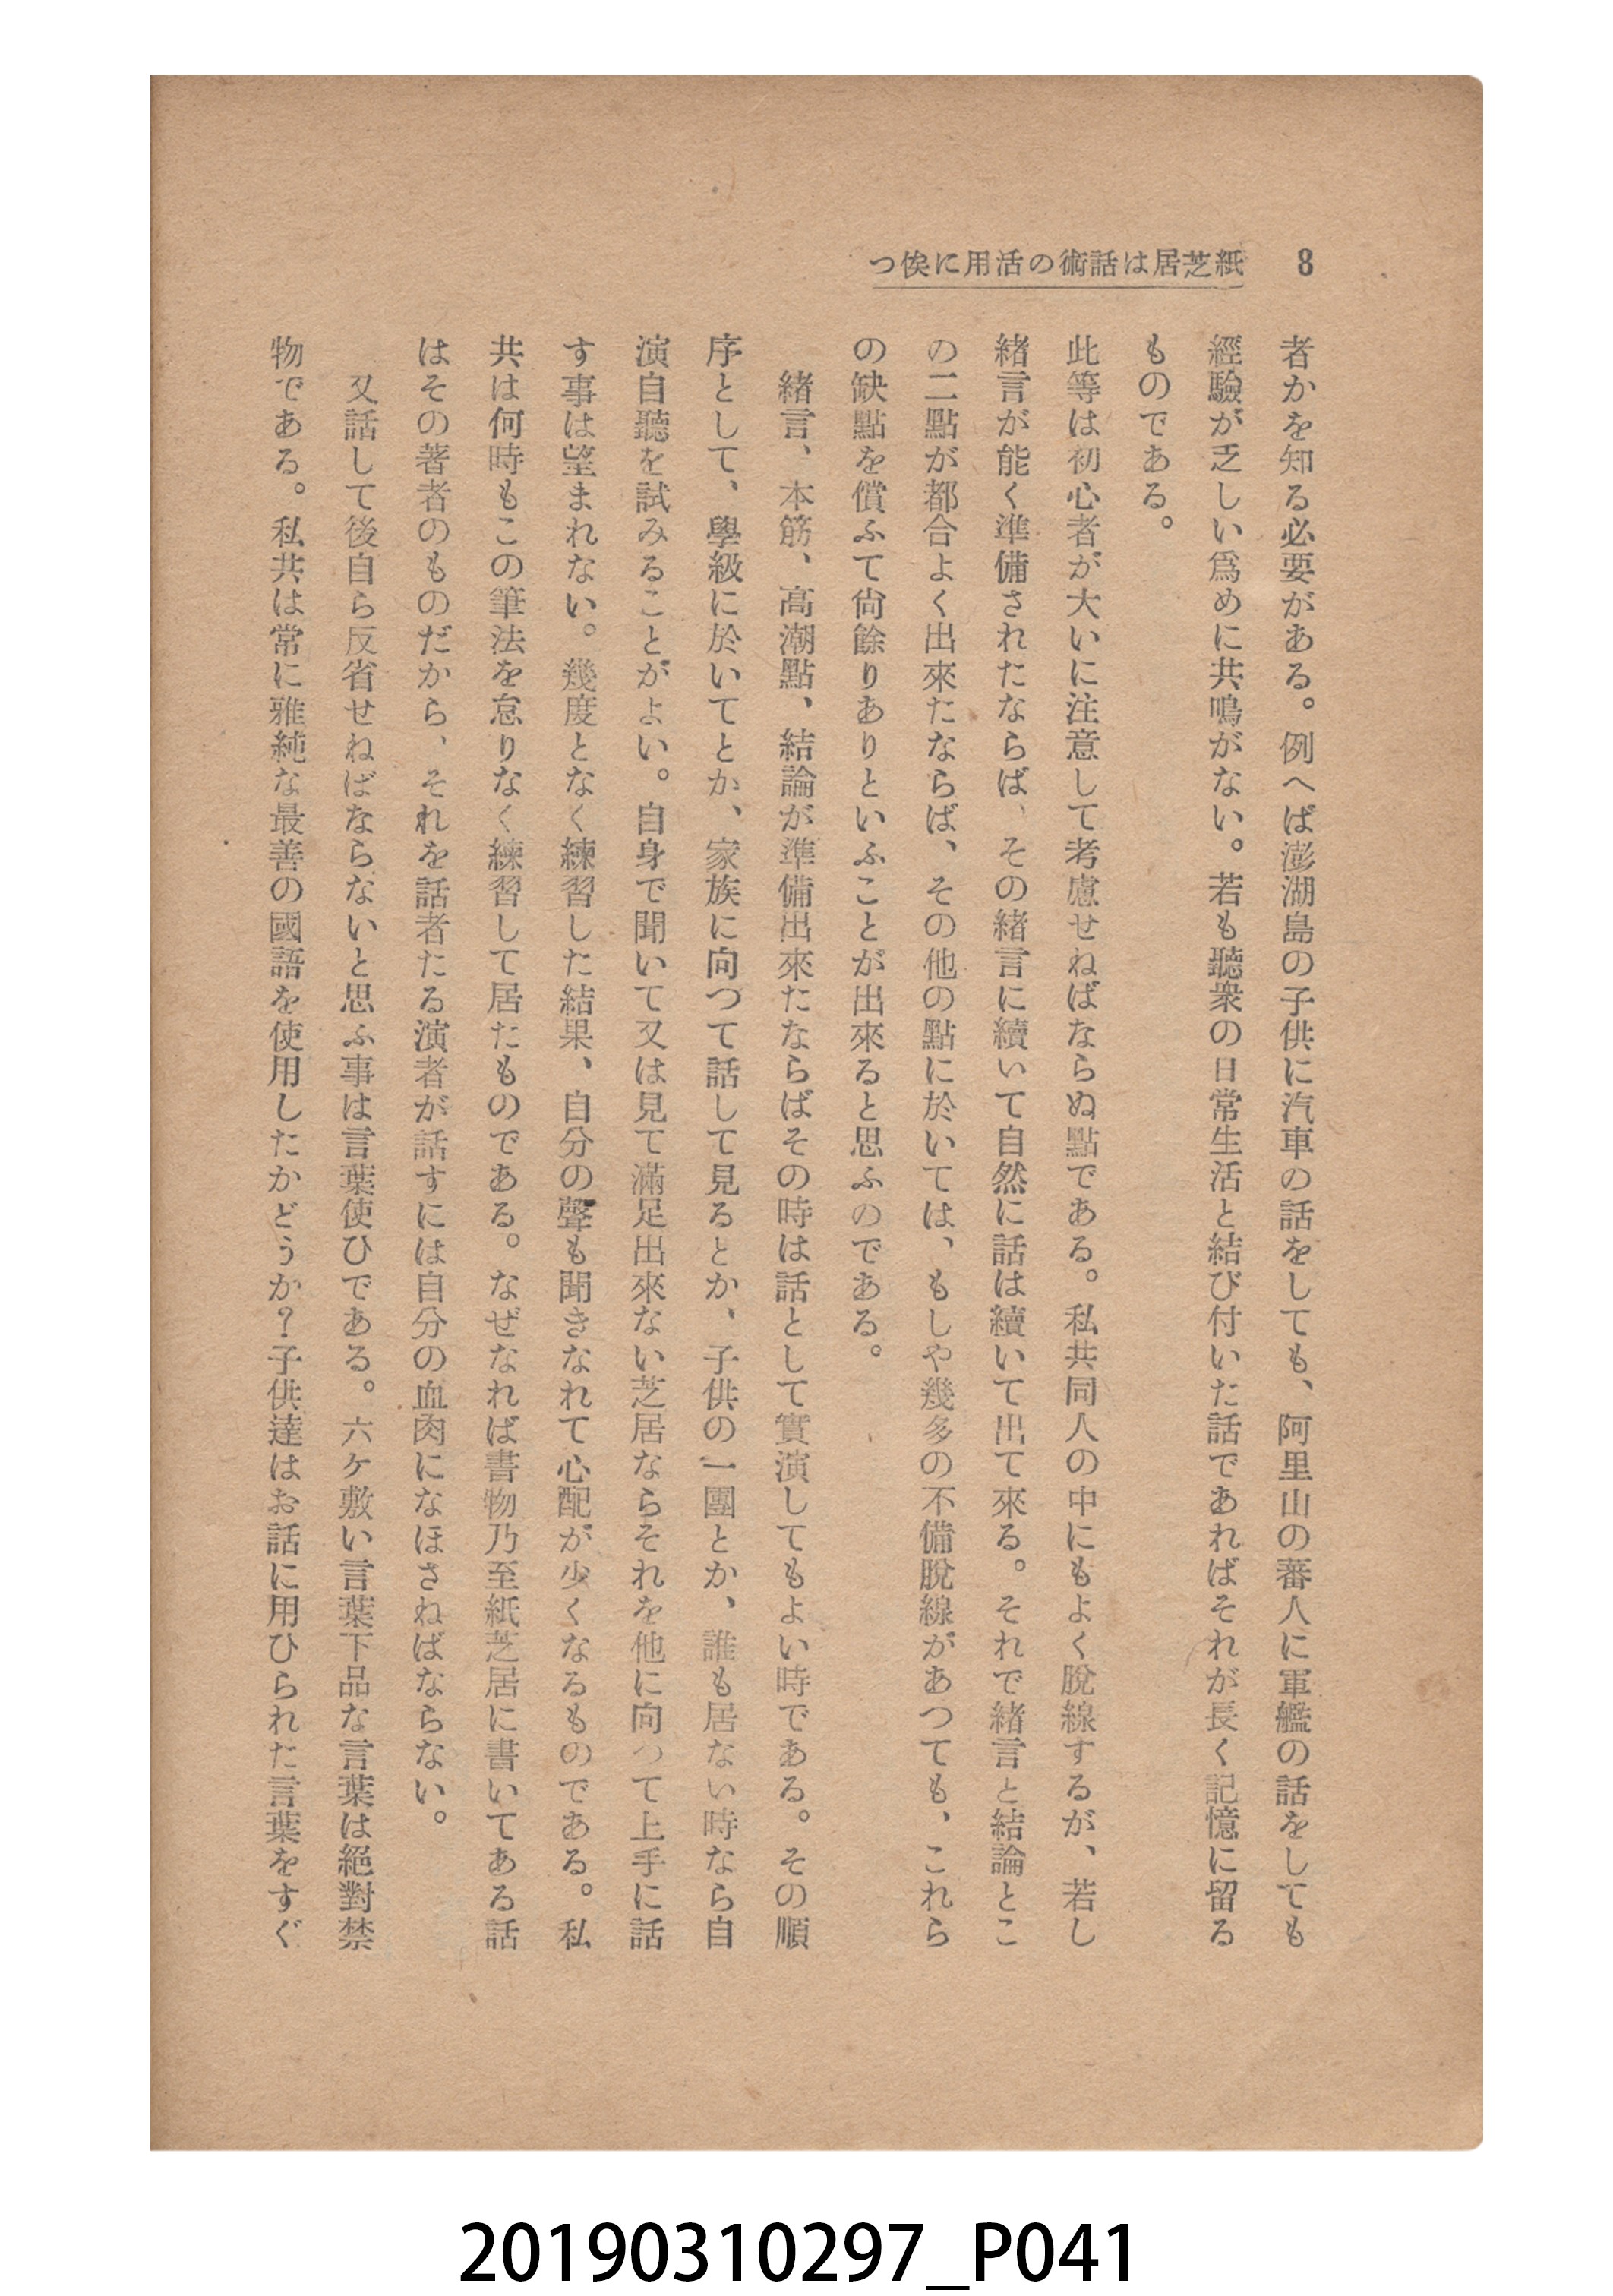 8
紙芝居は話術の活用に俟つ
者かを知る必要がある。例へば澎湖島の子供に汽車の話をしても、阿里山の蕃人に軍艦の話をしても
經驗が乏しい爲めに共鳴がない。若も聽衆の日常生活と結び付いた話であればそれが長く記憶に留る
ものである。
此等は初心者が大いに注意して考慮せねばならぬ點である。私共同人の中にもよく脫線するが、若し
緒言が能く準備されたならば、その緒言に續いて自然に話は續いて出て來る。それで緒言と結論とこ
の二點が都合よく出來たならば、その他の點に於いては、もしや幾多の不備脫線があつても、これら
の缺點を償ふて尙餘りありといふことが出來ると思ふのである。
緒言、本筋、高潮點、結論が準備出來たならばその時は話として實演してもよい時である。その順
序として、學級に於いてとか、家族に向つて話して見るとか、子供の一團とか、誰も居ない時なら自
演自聽を試みることがよい。自身で聞いて又は見て滿足出來ない芝居ならそれを他に向つて上手に話
す事は望まれない。幾度となく練習した結果、自分の聲も聞きなれて心配が少くなるものである。私
共は何時もこの筆法を怠りなく練習して居たものである。なぜなれば書物乃至紙芝居に書いてある話
はその著者のものだから、それを話者たる演者が話すには自分の血肉になほさねばならない。
又話して後自ら反省せねばならないと思ふ事は言葉使ひである。六ケ敷い言葉下品な言葉は絕對禁
物である。私共は常に雅純な最善の國語を使用したかどうか？子供達はお話に用ひられた言葉をすぐ
20190310297_P041